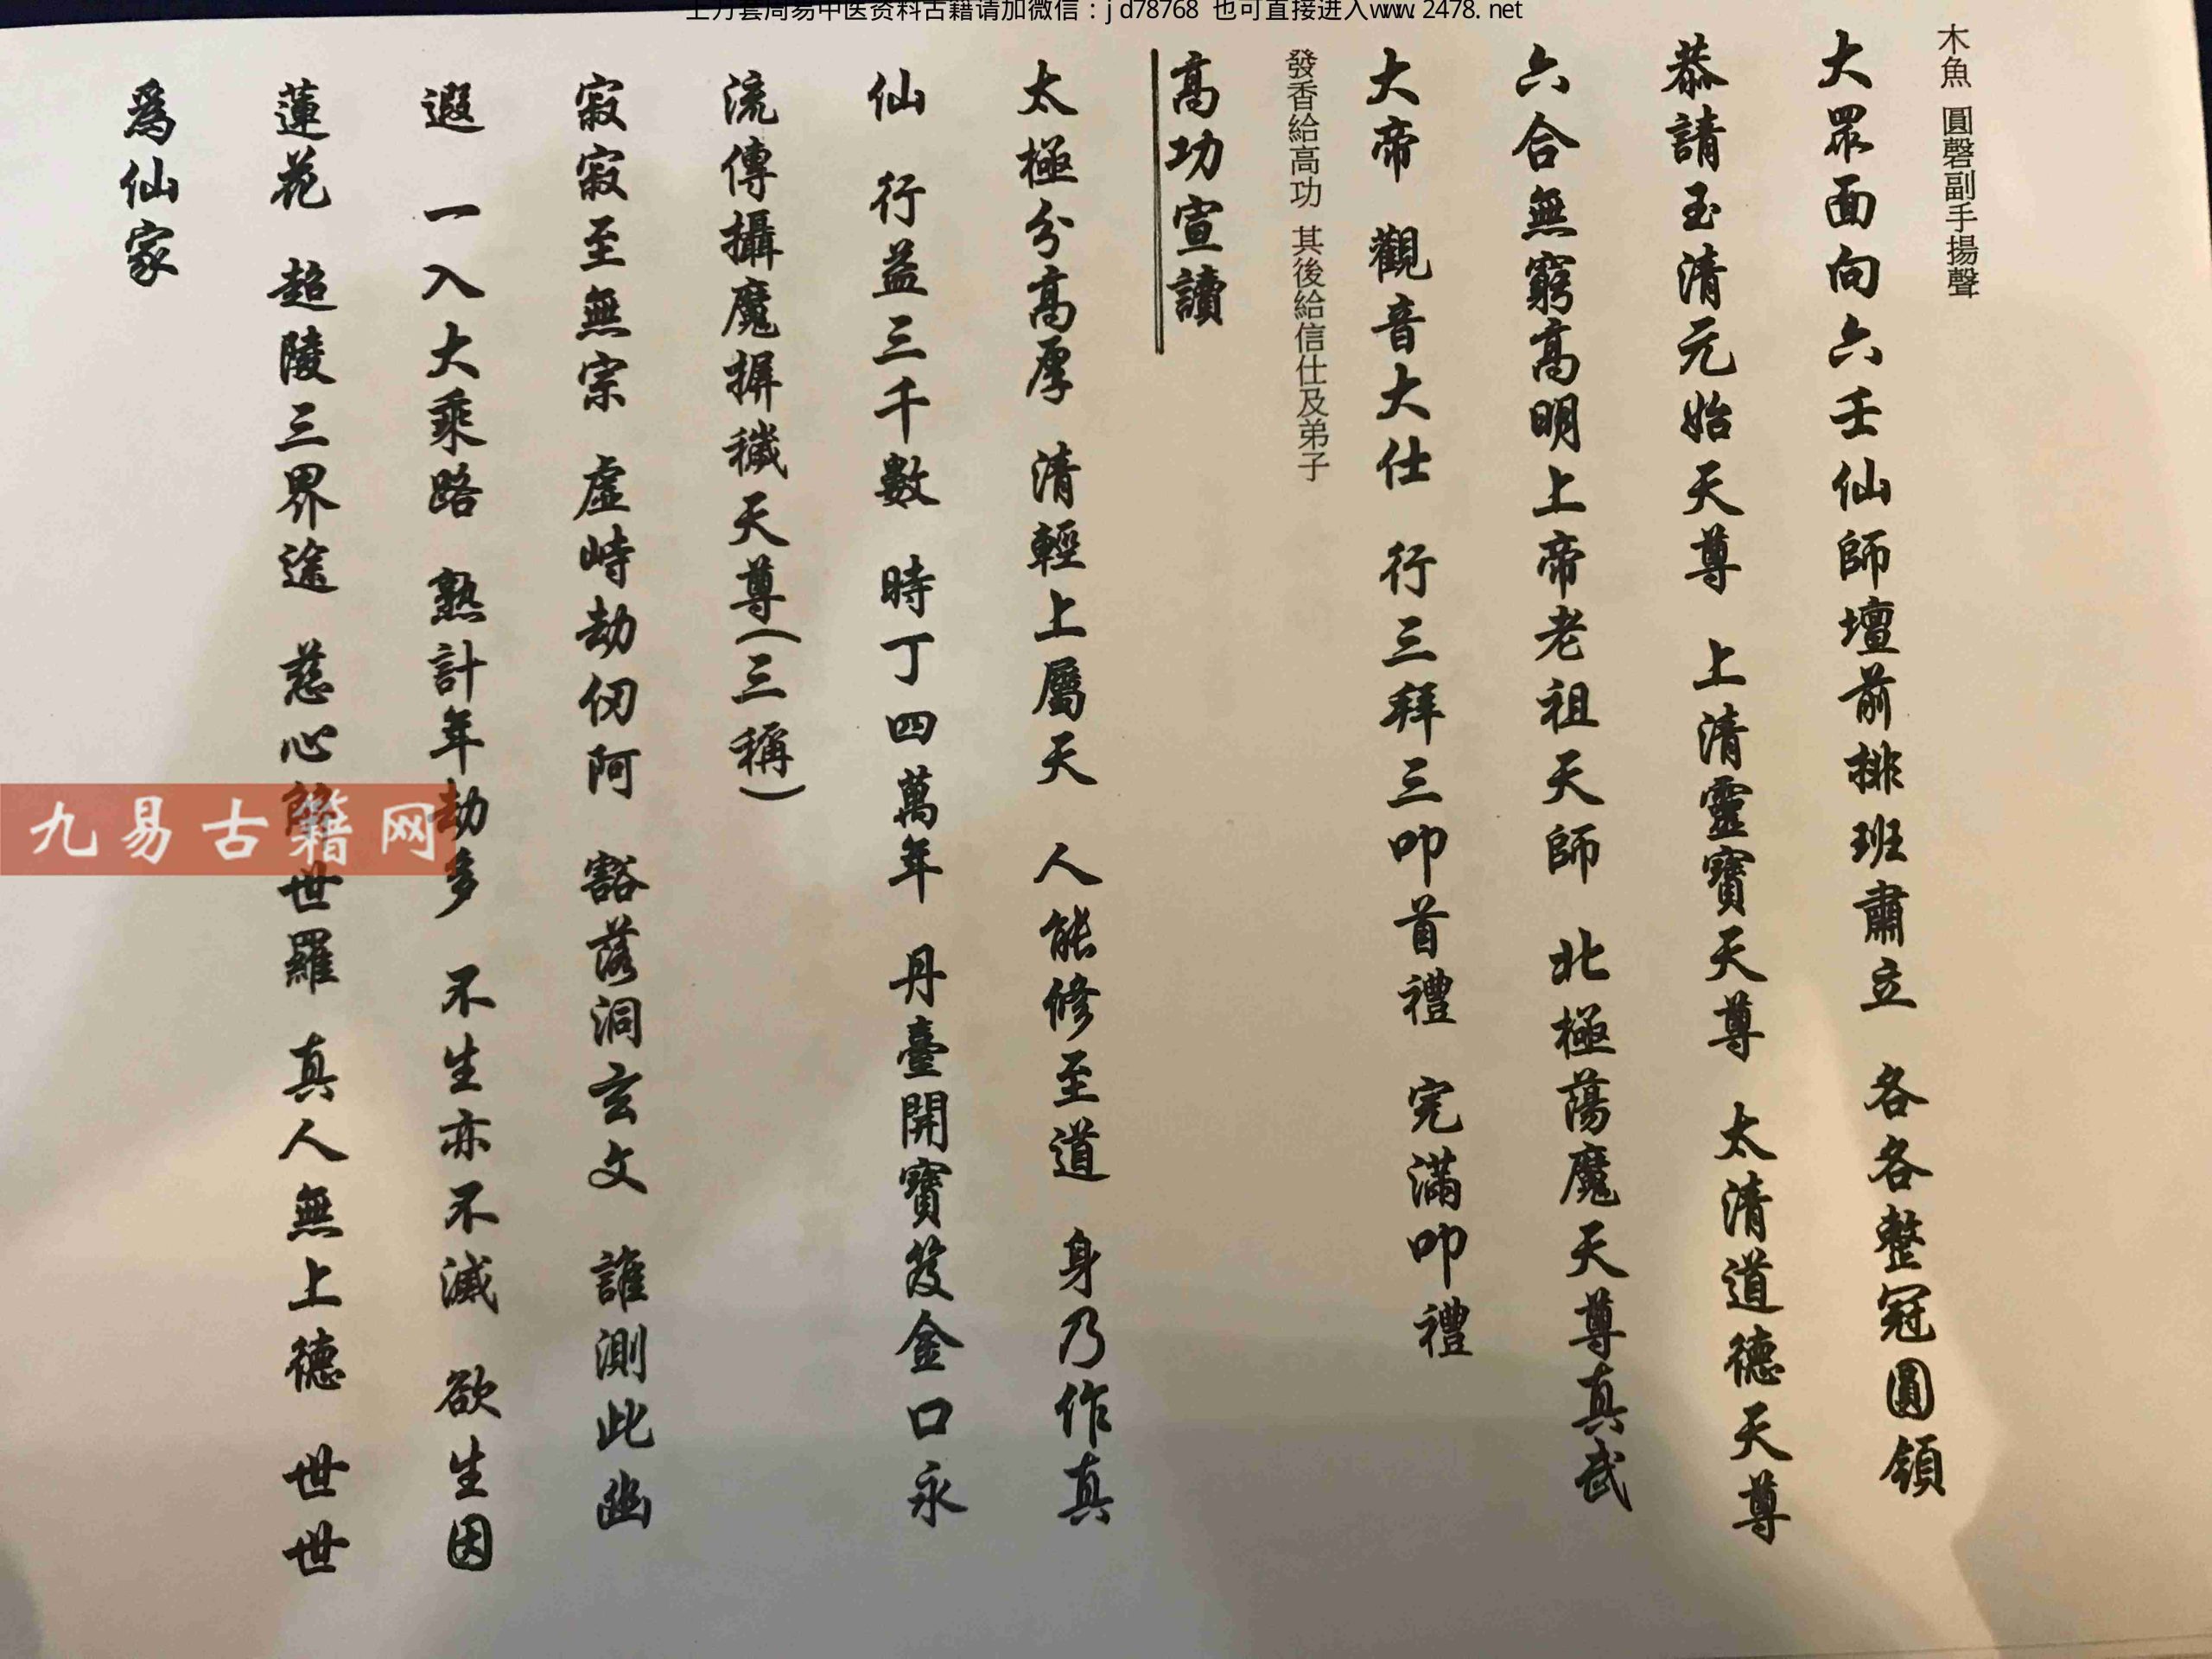 上万套周易中医资料古籍请加微信：jd78768 也可直接进入www.2478.net
木魚 圓磬副手揚聲
大眾面向六壬仙師壇前排班肅立 各各整冠圓領
恭請玉清元始天尊 上清靈寶天尊 太清道德天尊
六合無窮高明上帝老祖天師 北極蕩魔天尊真武
大帝 觀音大仕 行三拜三叩首禮 完滿叩禮
發香給高功 其後給信仕及弟子
高功宣讀
太極分高厚 清輕上屬天 人能修至道 身乃作真
仙 行益三千數 時丁四萬年 丹臺開寶笈金口永
流傳攝魔摒穢天尊(三稱)
寂寂至無宗 虛峙劫仞阿 豁落洞玄文 誰測此幽
遐 一入大乘路 熟計年劫多 不生亦不滅 欲生因
蓮花 超陵三界途 慈心世羅 真人無上德 世世
為仙家
九易古籍网